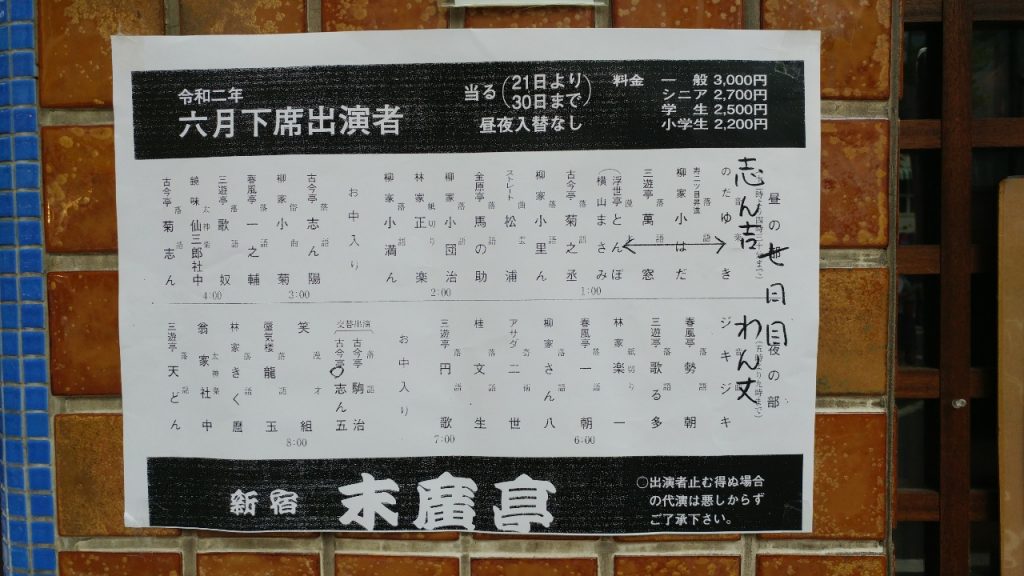 令和二年
六月下席出演者
当る(21日より
30日まで)
昼夜入替なし
料金 一般 3,000円
シニア 2,700円
学生 2,500円
小学生 2,200円
七日目
志ん吉
わん丈
昼の部
のだゆき
寿二ツ目昇進
柳家小はだ
落語 三遊亭萬窓
漫才 (浮世亭とんぼ
横山まさみ
1:00
落語 古今亭菊之丞
落語 柳家小里ん
ストレート松浦
落語 金原亭馬の助
2:00
落語 柳家小団治
紙切り 林家正楽
落語 柳家小満ん
お中入り
落語 古今亭志ん陽
3:00
俗曲 柳家小菊
落語 春風亭一之輔
落語 三遊亭歌奴
4:00
太神楽 鏡味仙三郎社中
落語 古今亭菊志ん
夜の部
(五時より九時まで)
ジキジキ
落語 春風亭勢朝
落語 三遊亭歌る多
紙切り 林家楽一
6:00
落語 春風亭一朝
落語 柳家さん八
奇術 アサダ二世
落語 桂文生
7:00
落語 三遊亭円歌
お中入り
交替出演
落語 古今亭駒治
落語 古今亭志ん五
8:00
漫才 笑組
落語 蜃気楼龍玉
落語 林家きく麿
太神楽 翁家社中
落語 三遊亭天どん
新宿 末廣亭
○出演者止む得ぬ場合
の代演は悪しからず
ご了承下さい。